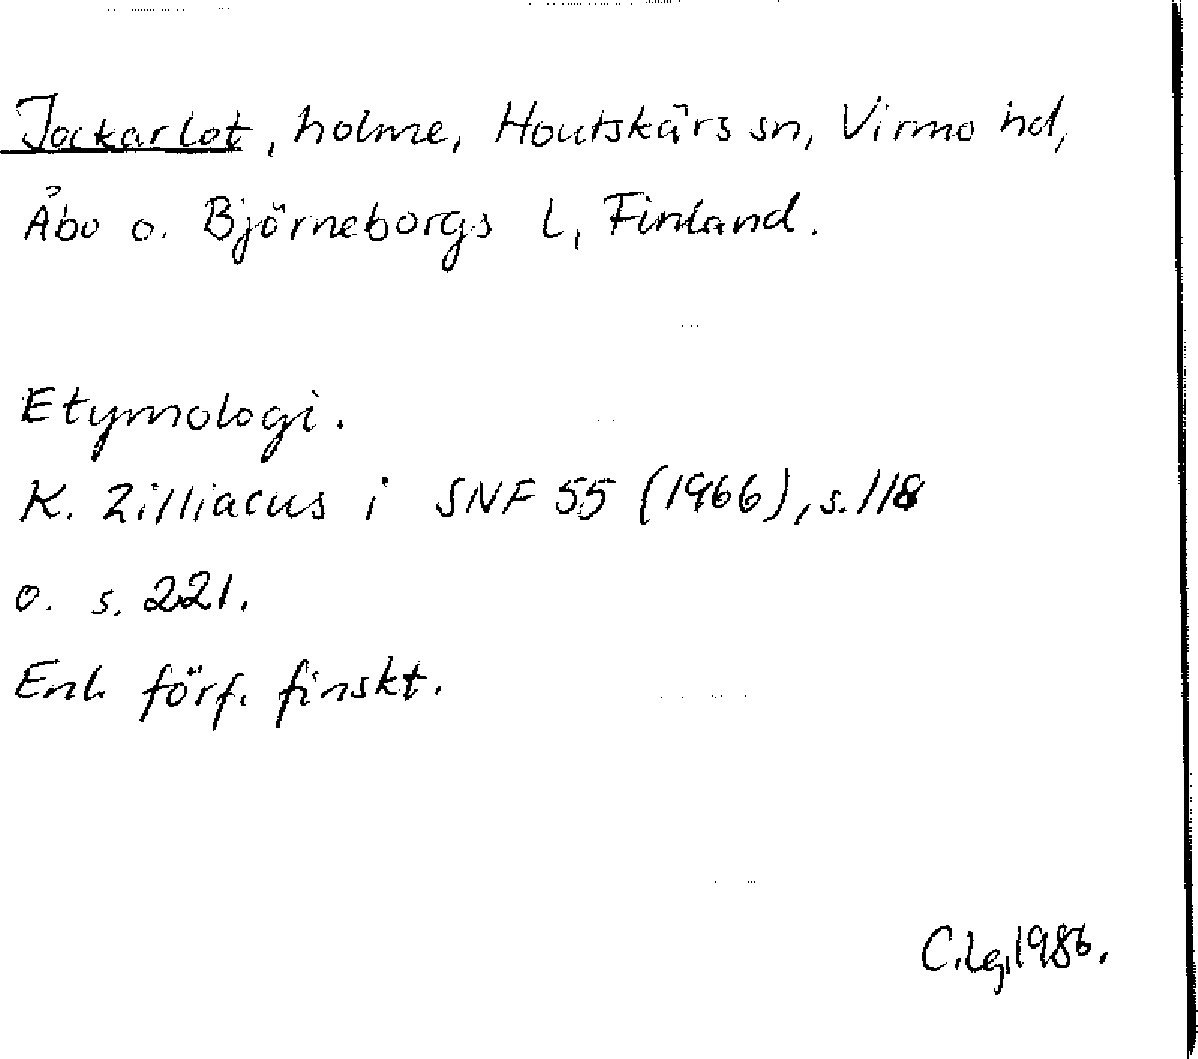 Jackarlot, holme, Houtskärs sn, Virmo hd,
Åbo o. Björneborgs l, Finland.
Etymologi.
K. Zilliacus i SNF 55 (1966), s. 118
o. s. 221.
Enl. förf. finskt.
C.Lg, 1986.